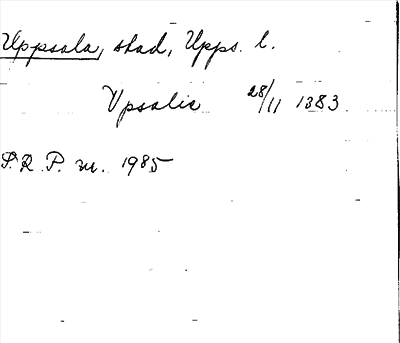 Uppsala, stad, Upps. l.
Upsalie 28/11 1383
S.R.P. nr. 1985